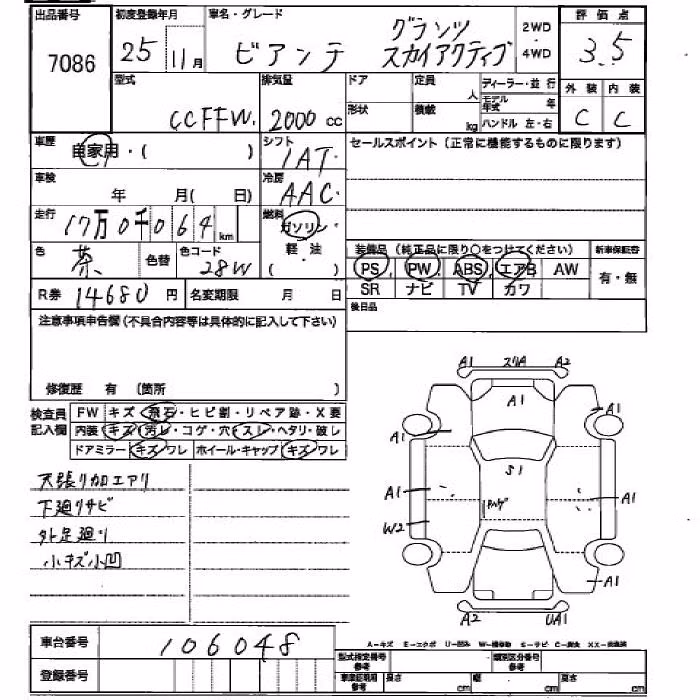 出品番号 初度登録年月 車名・グレード 2WD・4WD 評価点
7086 25 11月 ビアンテ グランツ スカイアクティブ 3.5
型式 排気量 ドア 定員 人 ディーラー・並行 外装 内装
CCFFW. 2000 cc 形状 積載 kg モデル年式 年 ハンドル 左・右 C C
車歴 自家用・( ) シフト 1AT. セールスポイント(正常に機能するものに限ります)
車検 年 月( 日) 冷房 AAC.
走行 17万0千064km 燃料 ガソリン 軽・油 ( )
色 茶 色替 色コード 28W 装備品(純正品に限り○をつけてください) 新車保証書
PS PW ABS エアB AW 有・無
R券 14680円 名変期限 月 日 SR ナビ TV カワ
注意事項申告欄(不具合内容等は具体的に記入して下さい) 後日品
修復歴 有 (箇所 )
検査員記入欄 FW キズ・飛石・ヒビ割・リペア跡・X要
内装 キズ・汚レ・コゲ・穴・スレ・ヘタリ・破レ
ドアミラー キズ・ワレ ホイール・キャップ キズ・ワレ
天張り加エアリ
下廻りサビ
外足廻り
小キズ小凹
A1 スリA A2
A1 A1
A1
S1
A1 A1
W2
A1
A2 UA1
車台番号 106048
A−キズ E−エクボ U−凹み
登録番号 型式指定番号参考 類別区分番号参考
車庫証明用参考 長さ cm 幅 cm 高さ cm